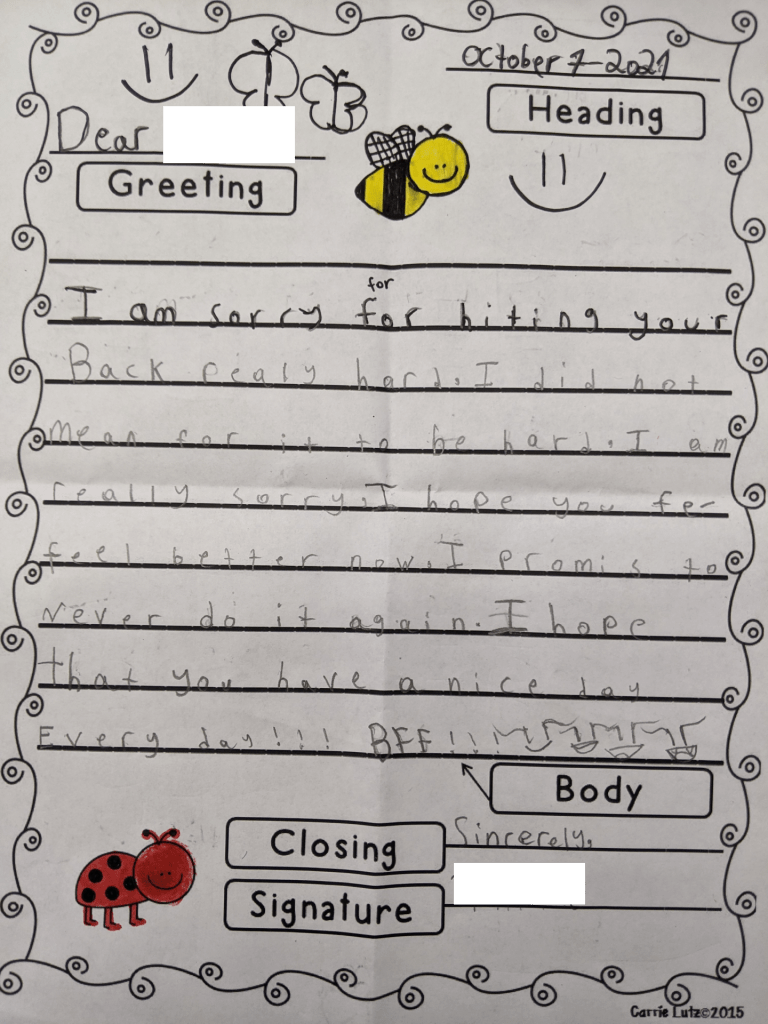 October 7-2021
Heading
Dear
Greeting
for
I am sorry for hiting your
Back realy hard. I did not
mean for it to be hard. I am
really sorry. I hope you fe-
feel better now. I promis to
never do it again. I hope
that you have a nice day
Every day!!! BFF!!!
Body
Closing Sincerely,
Signature
Carrie Lutz©2015